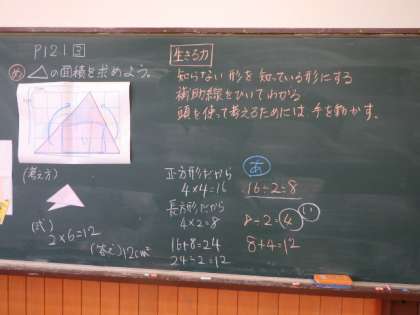 P121 5
め △の面積を求めよう。
(考え方)
(式)
2×6=12
(答え)12cm²
生きる力
知らない形を知っている形にする
補助線をひいてわかる
頭を使って考えるためには、手を動かす。
正方形だから
4×4=16
長方形だから
4×2=8
16+8=24
24÷2=12
あ
16÷2=8
8÷2=4
8+4=12